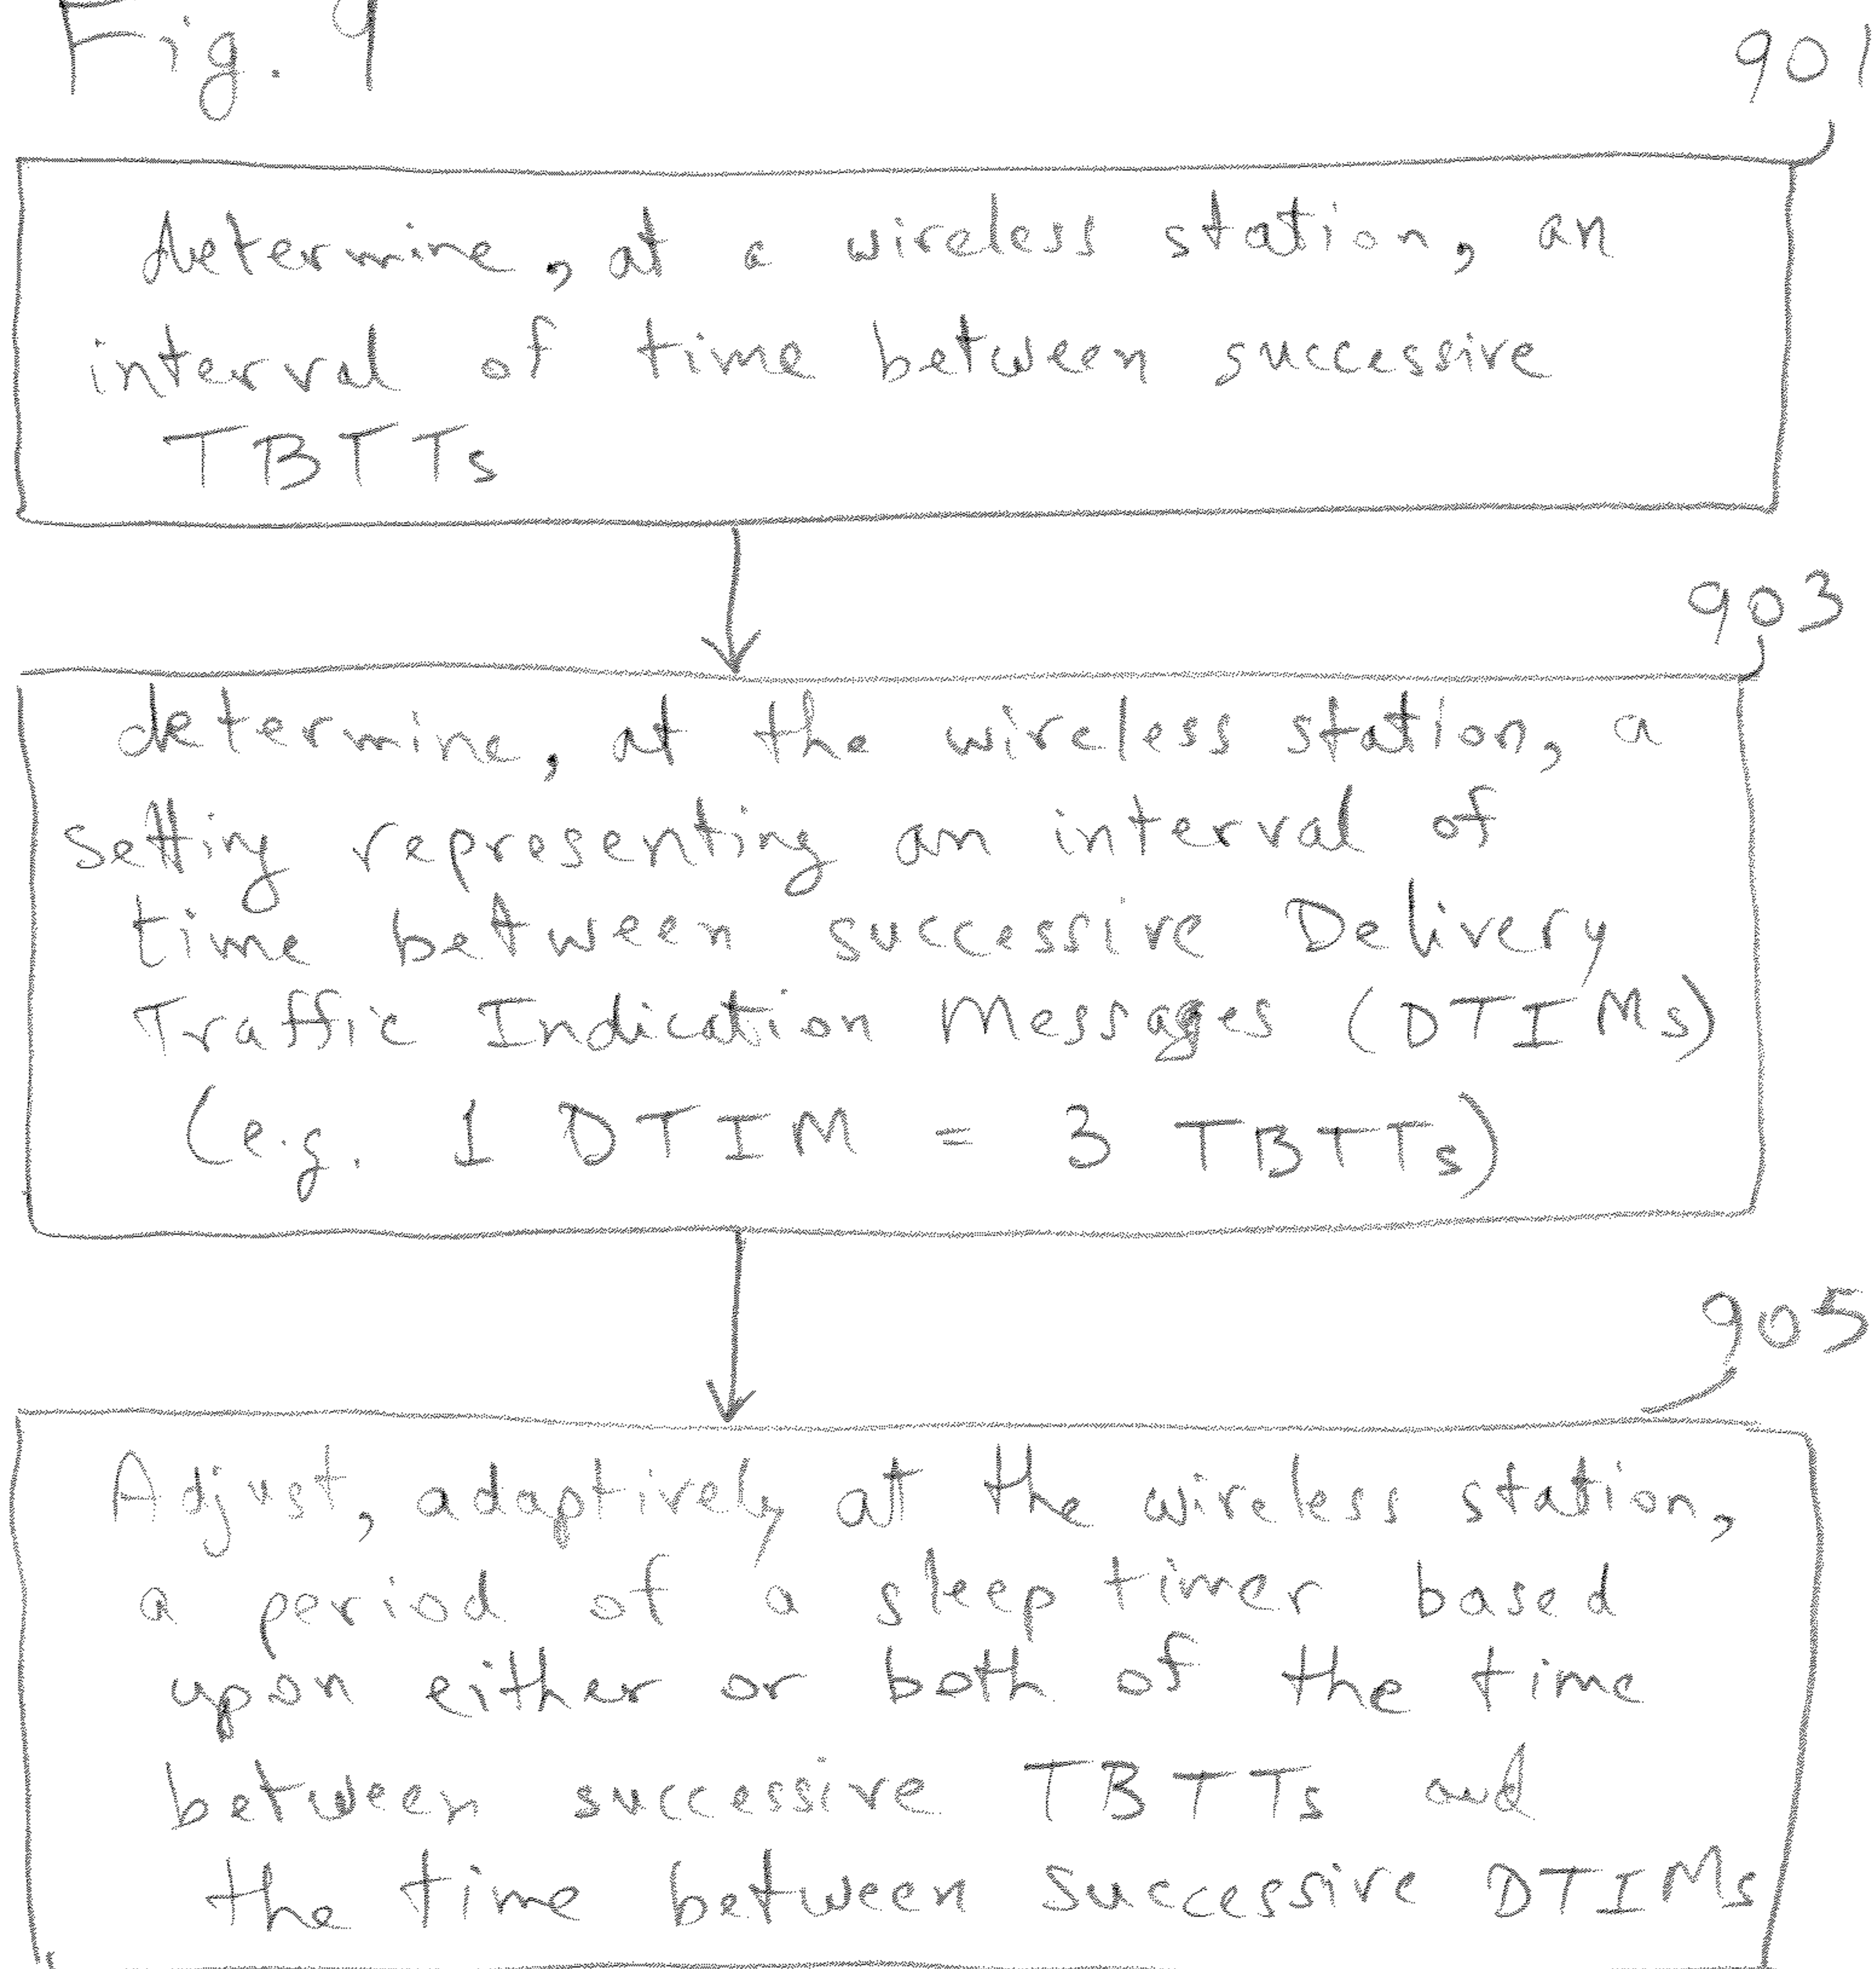 Fig. 9
901
determine, at a wireless station, an
interval of time between successive
TBTTs
903
determine, at the wireless station, a
setting representing an interval of
time between successive Delivery
Traffic Indication Messages (DTIMs)
(e.g. 1 DTIM = 3 TBTTs)
905
Adjust, adaptively at the wireless station,
a period of a sleep timer based
upon either or both of the time
between successive TBTTs and
the time between successive DTIMs